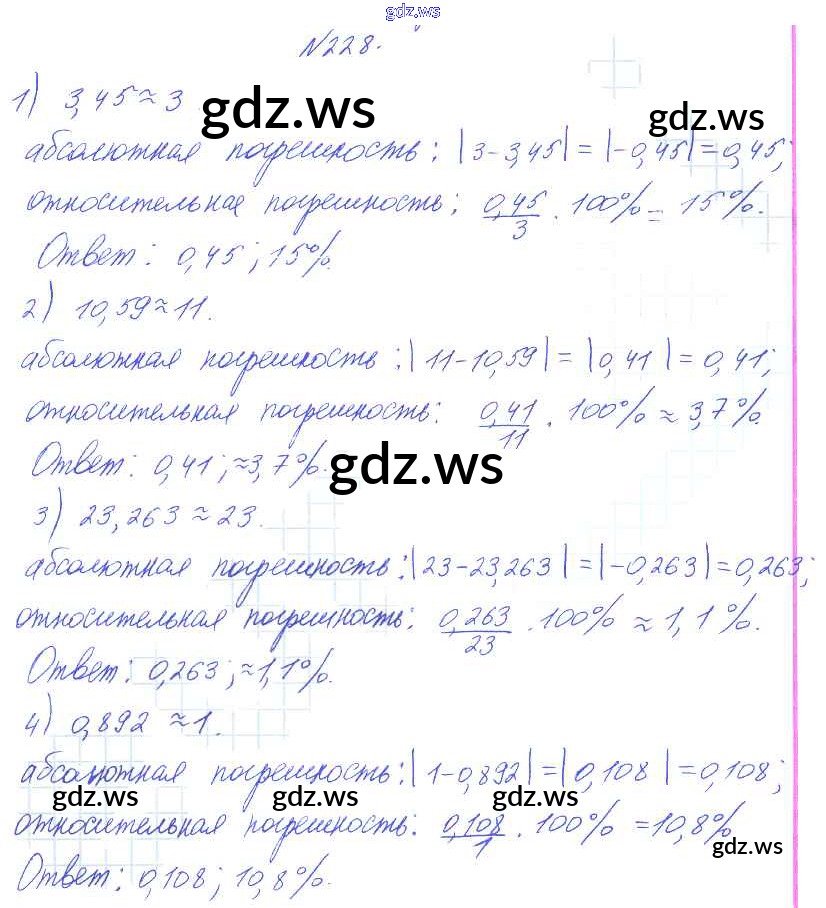 gdz.ws
№228.
1) 3,45≈3
gdz.ws
gdz.ws
абсолютная погрешность: |3-3,45|=|-0,45|=0,45;
относительная погрешность: 0,45/3 · 100% = 15%.
Ответ: 0,45; 15%.
2) 10,59≈11.
абсолютная погрешность: |11-10,59|=|0,41|=0,41;
относительная погрешность: 0,41/11 · 100% ≈ 3,7%.
Ответ: 0,41; ≈3,7%.
gdz.ws
3) 23,263≈23.
абсолютная погрешность: |23-23,263|=|-0,263|=0,263;
относительная погрешность: 0,263/23 · 100% ≈ 1,1%.
Ответ: 0,263; ≈1,1%.
4) 0,892≈1.
абсолютная погрешность: |1-0,892|=|0,108|=0,108;
gdz.ws gdz.ws gdz.ws
относительная погрешность: 0,108/1 · 100% =10,8%
gdz.ws
Ответ: 0,108; 10,8%.